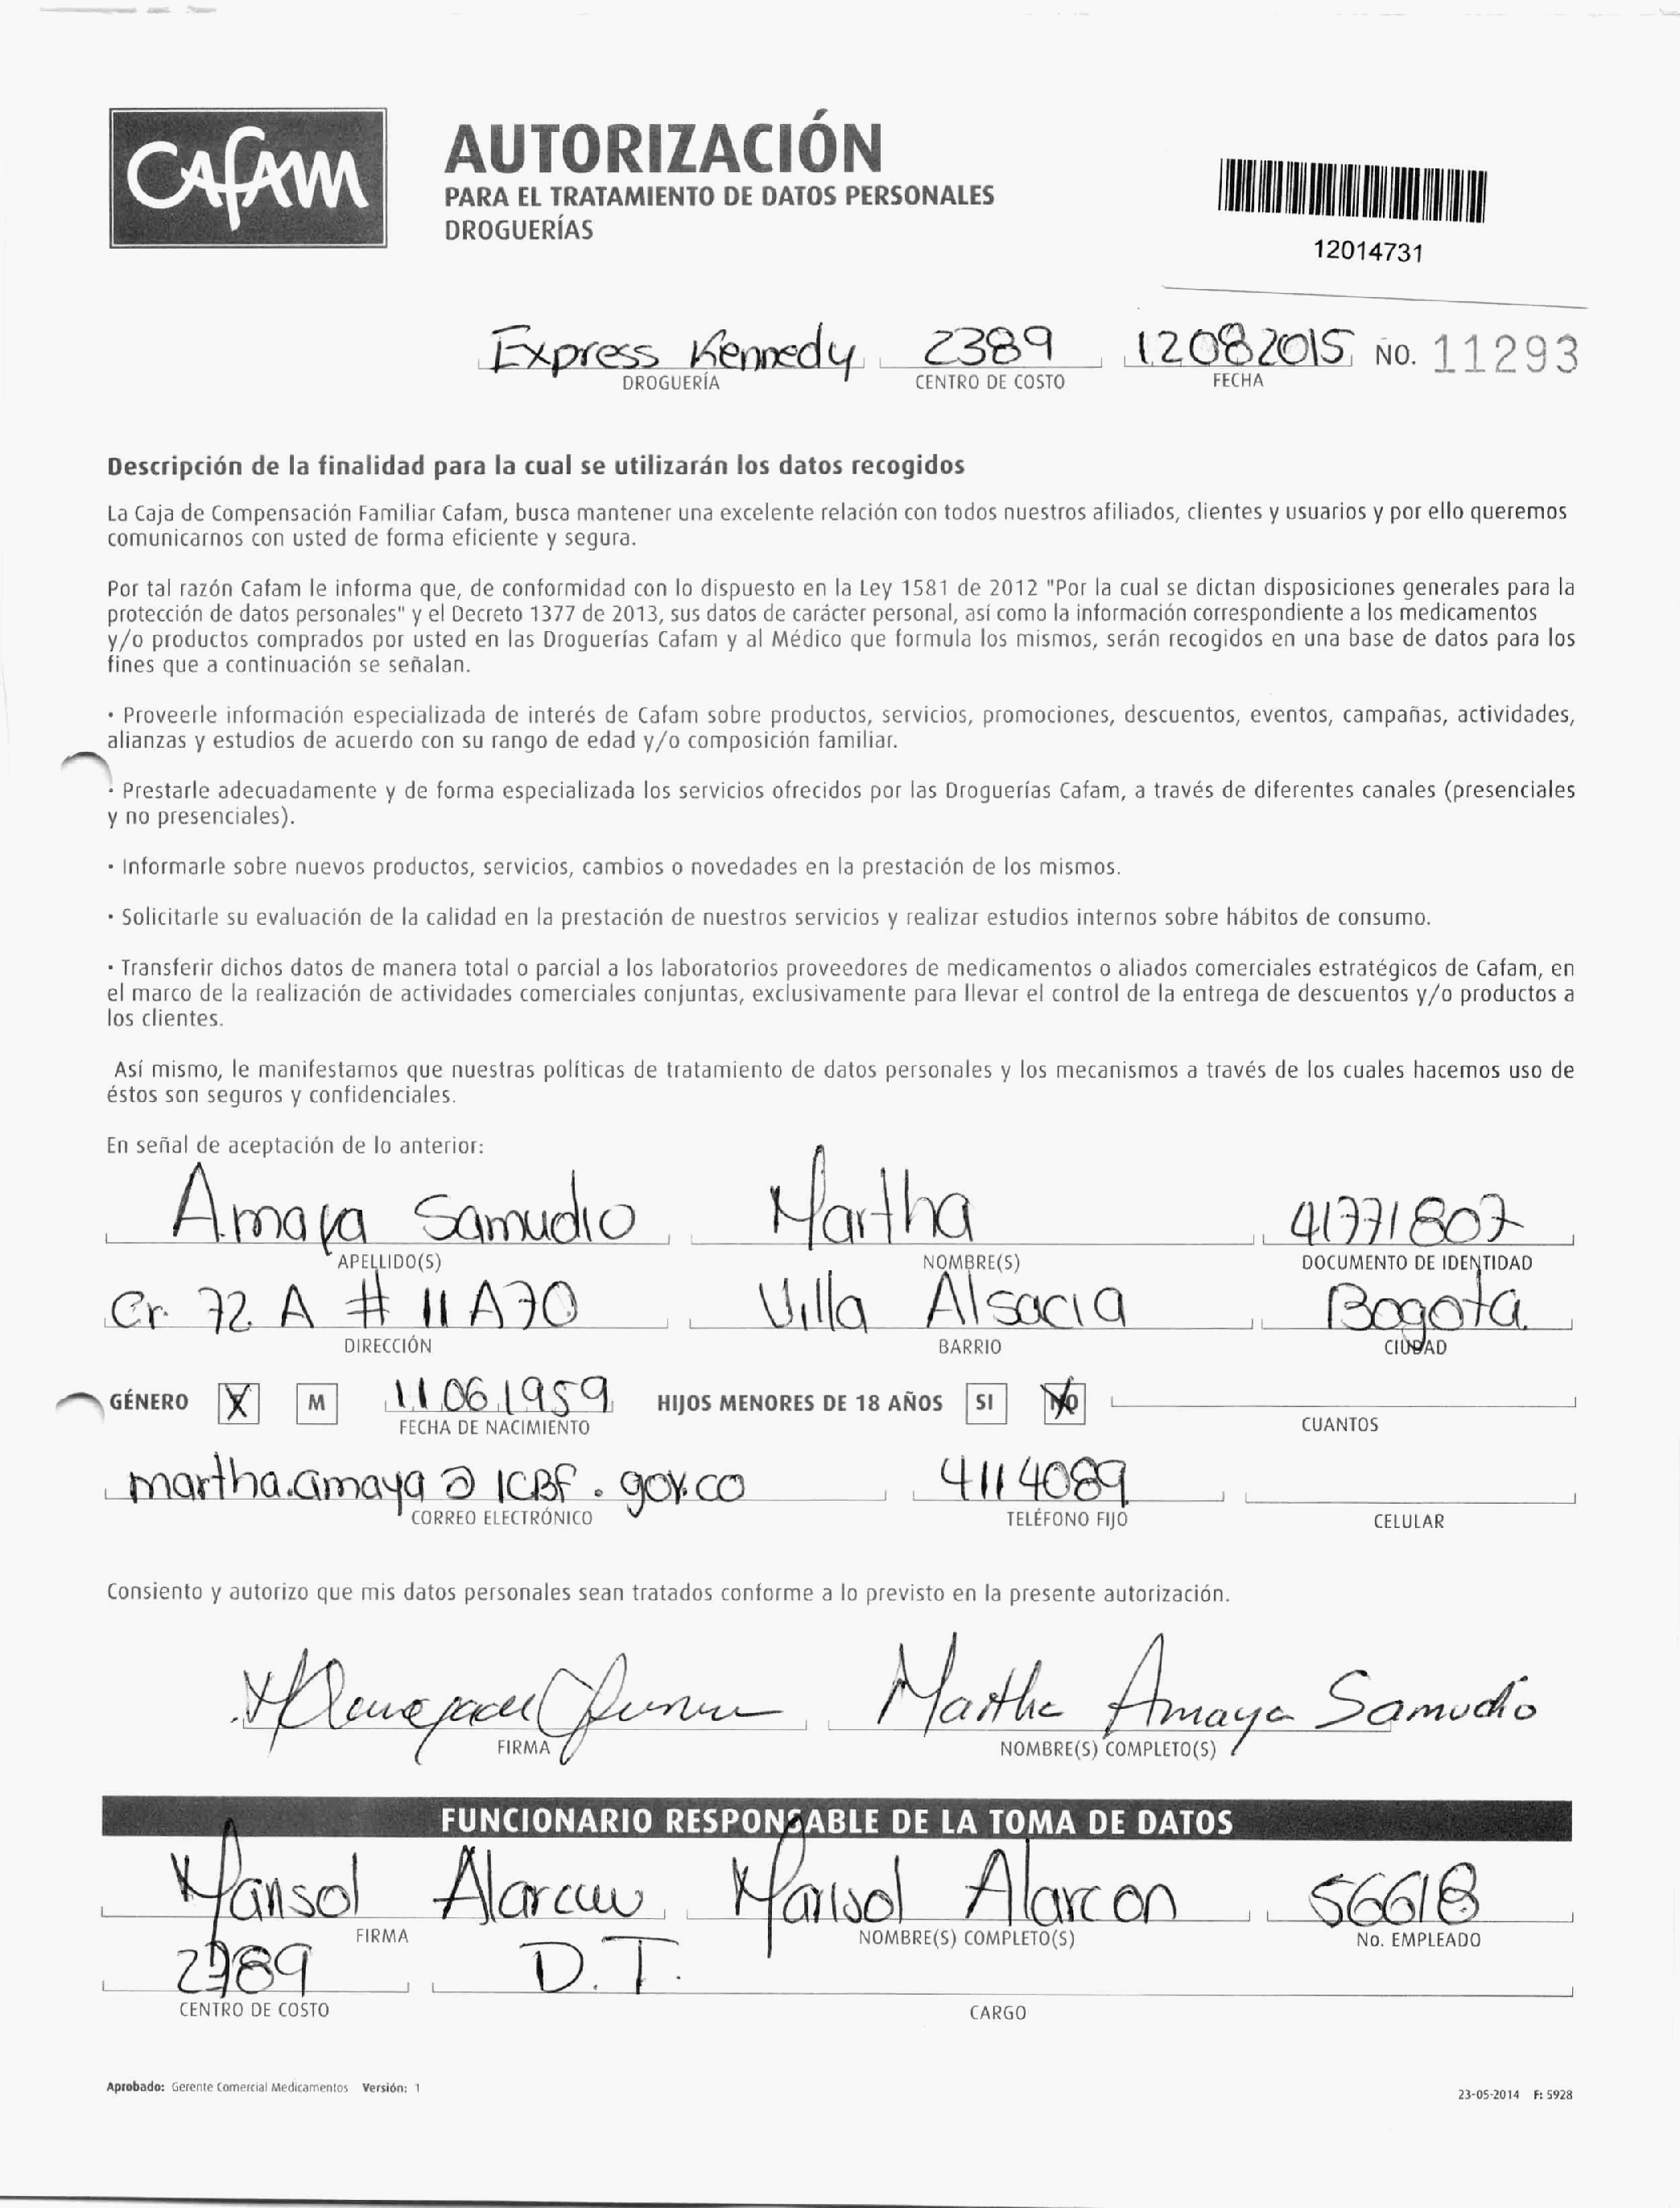 CAFAM
AUTORIZACIÓN
PARA EL TRATAMIENTO DE DATOS PERSONALES
DROGUERÍAS
12014731
Express Kennedy 2389 12082015 No. 11293
DROGUERÍA CENTRO DE COSTO FECHA
Descripción de la finalidad para la cual se utilizarán los datos recogidos
La Caja de Compensación Familiar Cafam, busca mantener una excelente relación con todos nuestros afiliados, clientes y usuarios y por ello queremos
comunicarnos con usted de forma eficiente y segura.
Por tal razón Cafam le informa que, de conformidad con lo dispuesto en la Ley 1581 de 2012 "Por la cual se dictan disposiciones generales para la
protección de datos personales" y el Decreto 1377 de 2013, sus datos de carácter personal, así como la información correspondiente a los medicamentos
y/o productos comprados por usted en las Droguerías Cafam y al Médico que formula los mismos, serán recogidos en una base de datos para los
fines que a continuación se señalan.
· Proveerle información especializada de interés de Cafam sobre productos, servicios, promociones, descuentos, eventos, campañas, actividades,
alianzas y estudios de acuerdo con su rango de edad y/o composición familiar.
· Prestarle adecuadamente y de forma especializada los servicios ofrecidos por las Droguerías Cafam, a través de diferentes canales (presenciales
y no presenciales).
· Informarle sobre nuevos productos, servicios, cambios o novedades en la prestación de los mismos.
· Solicitarle su evaluación de la calidad en la prestación de nuestros servicios y realizar estudios internos sobre hábitos de consumo.
· Transferir dichos datos de manera total o parcial a los laboratorios proveedores de medicamentos o aliados comerciales estratégicos de Cafam, en
el marco de la realización de actividades comerciales conjuntas, exclusivamente para llevar el control de la entrega de descuentos y/o productos a
los clientes.
Así mismo, le manifestamos que nuestras políticas de tratamiento de datos personales y los mecanismos a través de los cuales hacemos uso de
éstos son seguros y confidenciales.
En señal de aceptación de lo anterior:
Amaya Samudio Martha 41771807
APELLIDO(S) NOMBRE(S) DOCUMENTO DE IDENTIDAD
Cr. 72 A # 11 A70 Villa Alsacia Bogota
DIRECCIÓN BARRIO CIUDAD
GÉNERO X M 11061959 HIJOS MENORES DE 18 AÑOS SI NO
FECHA DE NACIMIENTO CUANTOS
martha.amaya@ICBF.gov.co 4114089
CORREO ELECTRÓNICO TELÉFONO FIJO CELULAR
Consiento y autorizo que mis datos personales sean tratados conforme a lo previsto en la presente autorización.
Martha Amaya Samudio
FIRMA NOMBRE(S) COMPLETO(S)
FUNCIONARIO RESPONSABLE DE LA TOMA DE DATOS
Marisol Alarcon Marisol Alarcon 56618
FIRMA NOMBRE(S) COMPLETO(S) No. EMPLEADO
2389 D.T.
CENTRO DE COSTO CARGO
Aprobado: Gerente Comercial Medicamentos Versión: 1
23-05-2014 F: 5928